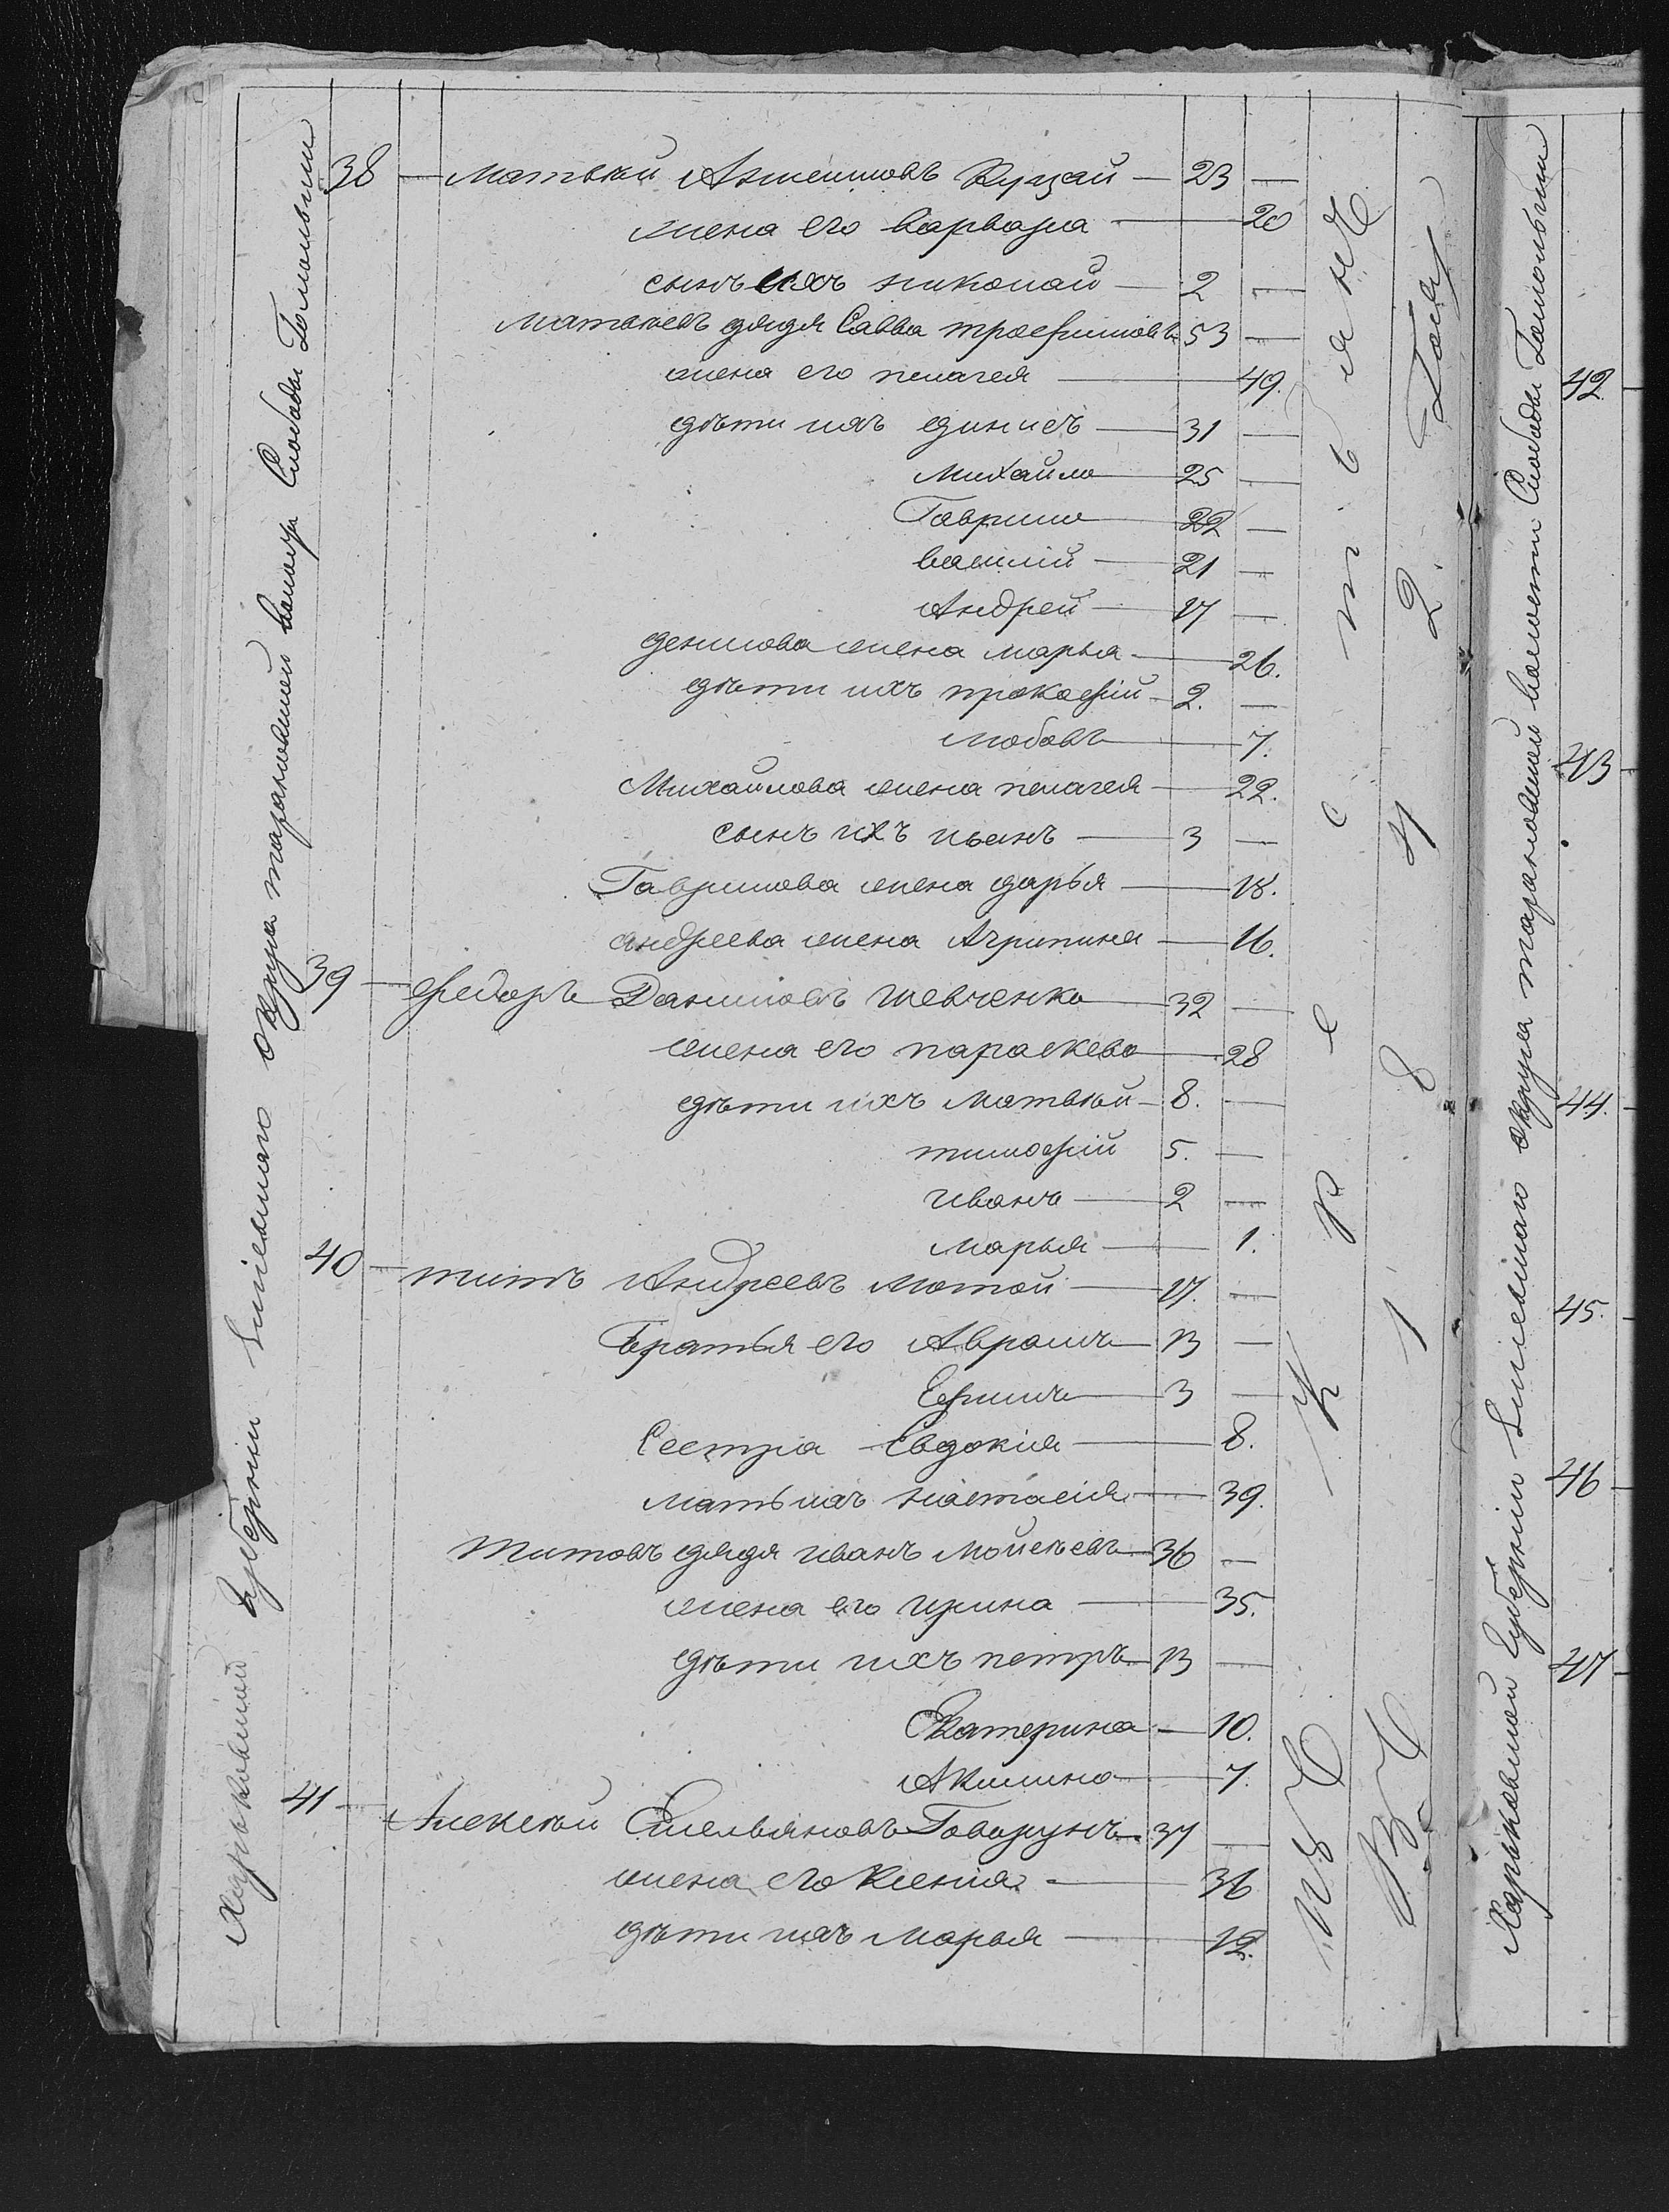 Харьковской Губернии Зміевскаго округа тарановской волости Слободы Гомольши
38 — Матвѣй Акимовъ Куцай — 23 —
жена его варвара — 20
сынъ ихъ николай — 2 —
Матвѣевъ дядя Савва трофимовъ 53 —
жена его пелагея — 49.
дѣти ихъ данило — 31 —
Михайло — 25 —
Гаврило — 22 —
василій — 21 —
Андрей — 17 —
данилова жена марья — 26.
дѣти ихъ прокофій — 2. —
любовь — 7.
Михайлова жена пелагея — 22.
сынъ ихъ иванъ — 3 —
Гаврилова жена дарья — 18.
андреева жена Агрипина — 16.
39 — федоръ Даниловъ шевченко — 32 —
жена его параскева — 28
дѣти ихъ матвѣй — 8. —
тимофій 5. —
иванъ — 2 —
марья — 1.
40 — титъ Андреевъ мотой — 17. —
Братья его Аврамъ — 13 —
Ефимъ — 3 —
Сестра Евдокія — 8.
мать ихъ настасія — 39.
титовъ дядя иванъ мойсѣевъ — 36 —
жена его ирина — 35.
дѣти ихъ петръ — 13 —
Екатерина — 10.
Акилина — 7.
41 — Алексѣй Емельяновъ Говорунъ — 37 —
жена его Ксенія — 36
дѣти ихъ марья — 12.
крестьяне
1842 Года
Харьковской Губерніи Зміевскаго округа тарановской волости Слободы Гомольши
42
43
44.
45.
46
47